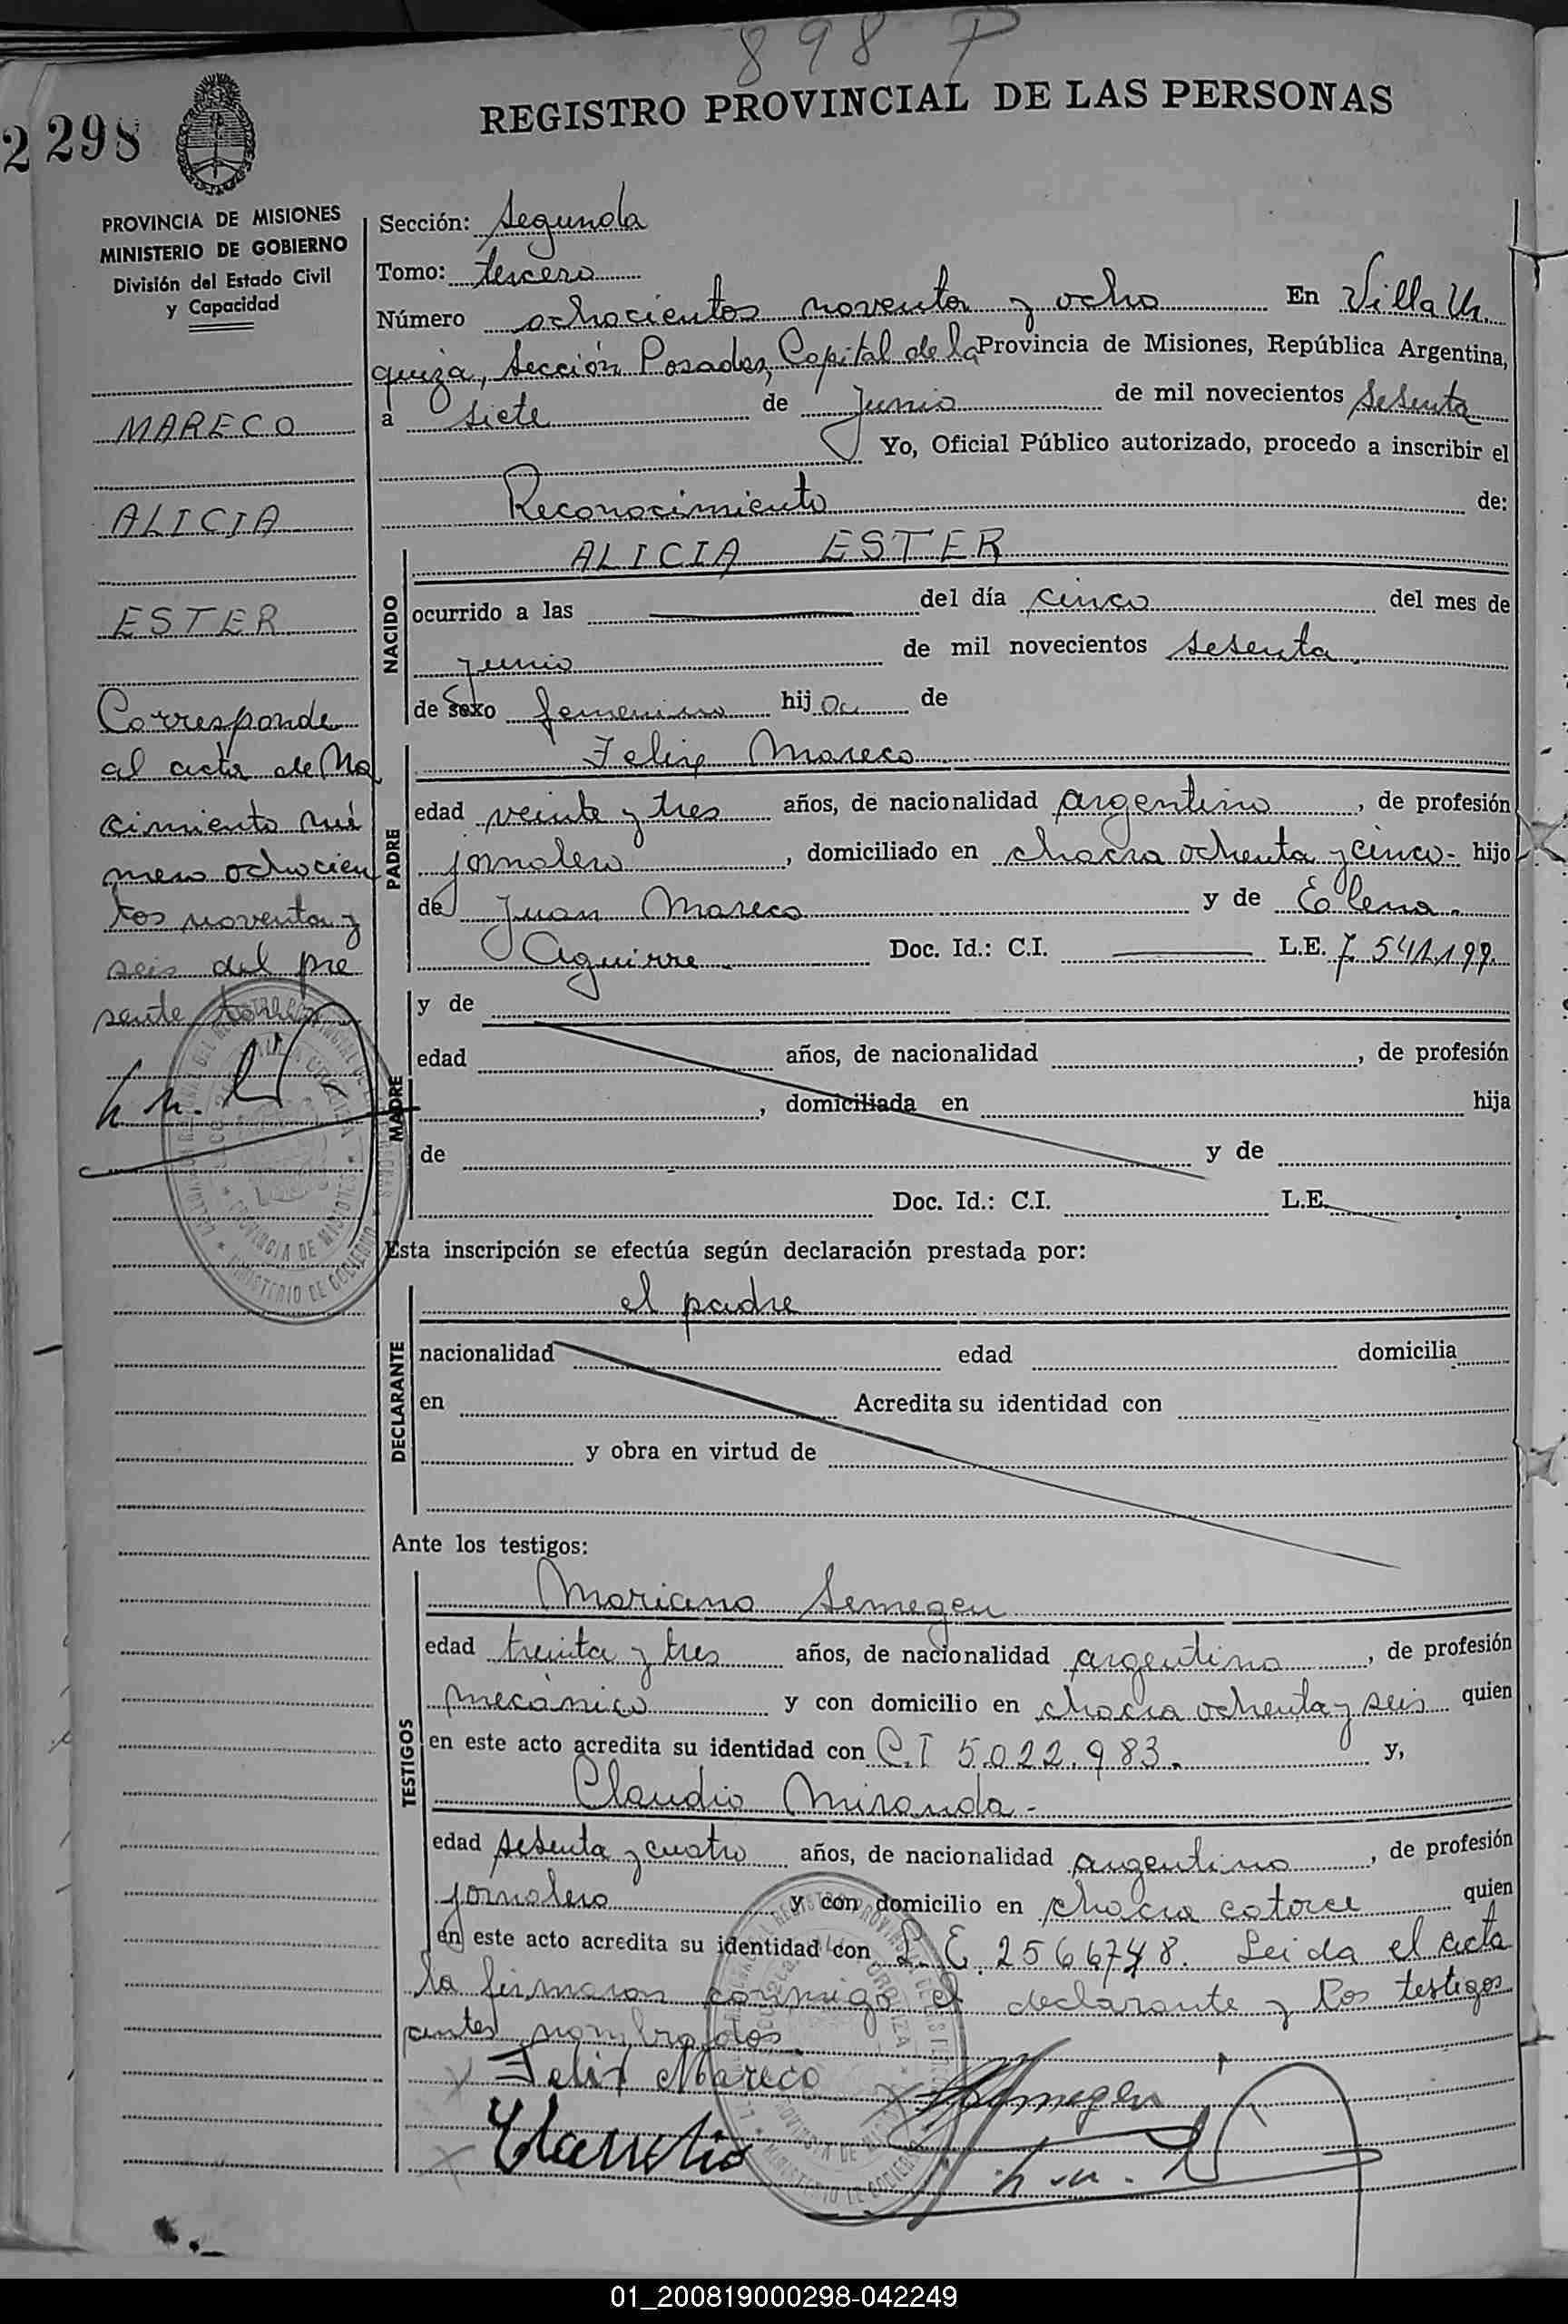 898 P
2298
REGISTRO PROVINCIAL DE LAS PERSONAS
PROVINCIA DE MISIONES
MINISTERIO DE GOBIERNO
División del Estado Civil
y Capacidad
MARECO
ALICIA
ESTER
Corresponde
al acta de Na
cimiento nú
mero ochocien
tos noventa y
seis del pre
sente tomo
Sección: Segunda
Tomo: tercero
Número ochocientos noventa y ocho En Villa Ur
quiza, Sección Posadas, Capital de la Provincia de Misiones, República Argentina,
a siete de Junio de mil novecientos Sesenta
Yo, Oficial Público autorizado, procedo a inscribir el
Reconocimiento de:
NACIDO
ALICIA ESTER
ocurrido a las del día cinco del mes de
junio de mil novecientos sesenta.
de sexo femenino hija de
PADRE
Felix Mareco
edad veinte y tres años, de nacionalidad argentino, de profesión
jornalero, domiciliado en chacra ochenta y cinco- hijo
de Juan Mareco y de Elena
Aguirre Doc. Id.: C.I. L.E. 7.541.199.
MADRE
y de
edad años, de nacionalidad , de profesión
, domiciliada en hija
de y de
Doc. Id.: C.I. L.E.
Esta inscripción se efectúa según declaración prestada por:
DECLARANTE
el padre
nacionalidad edad domicilia
en Acredita su identidad con
y obra en virtud de
Ante los testigos:
TESTIGOS
Mariano Semegen
edad treinta y tres años, de nacionalidad argentino, de profesión
mecánico y con domicilio en chacra ochenta y seis quien
en este acto acredita su identidad con C.I 5.022.983. y,
Claudio Miranda-
edad sesenta y cuatro años, de nacionalidad argentino, de profesión
jornalero y con domicilio en chacra catorce quien
en este acto acredita su identidad con L.E. 2566748. Leida el acta
la firmaron conmigo el declarante y los testigos
antes nombrados.
Felix Mareco
Semegen
Claudio
01_200819000298-042249